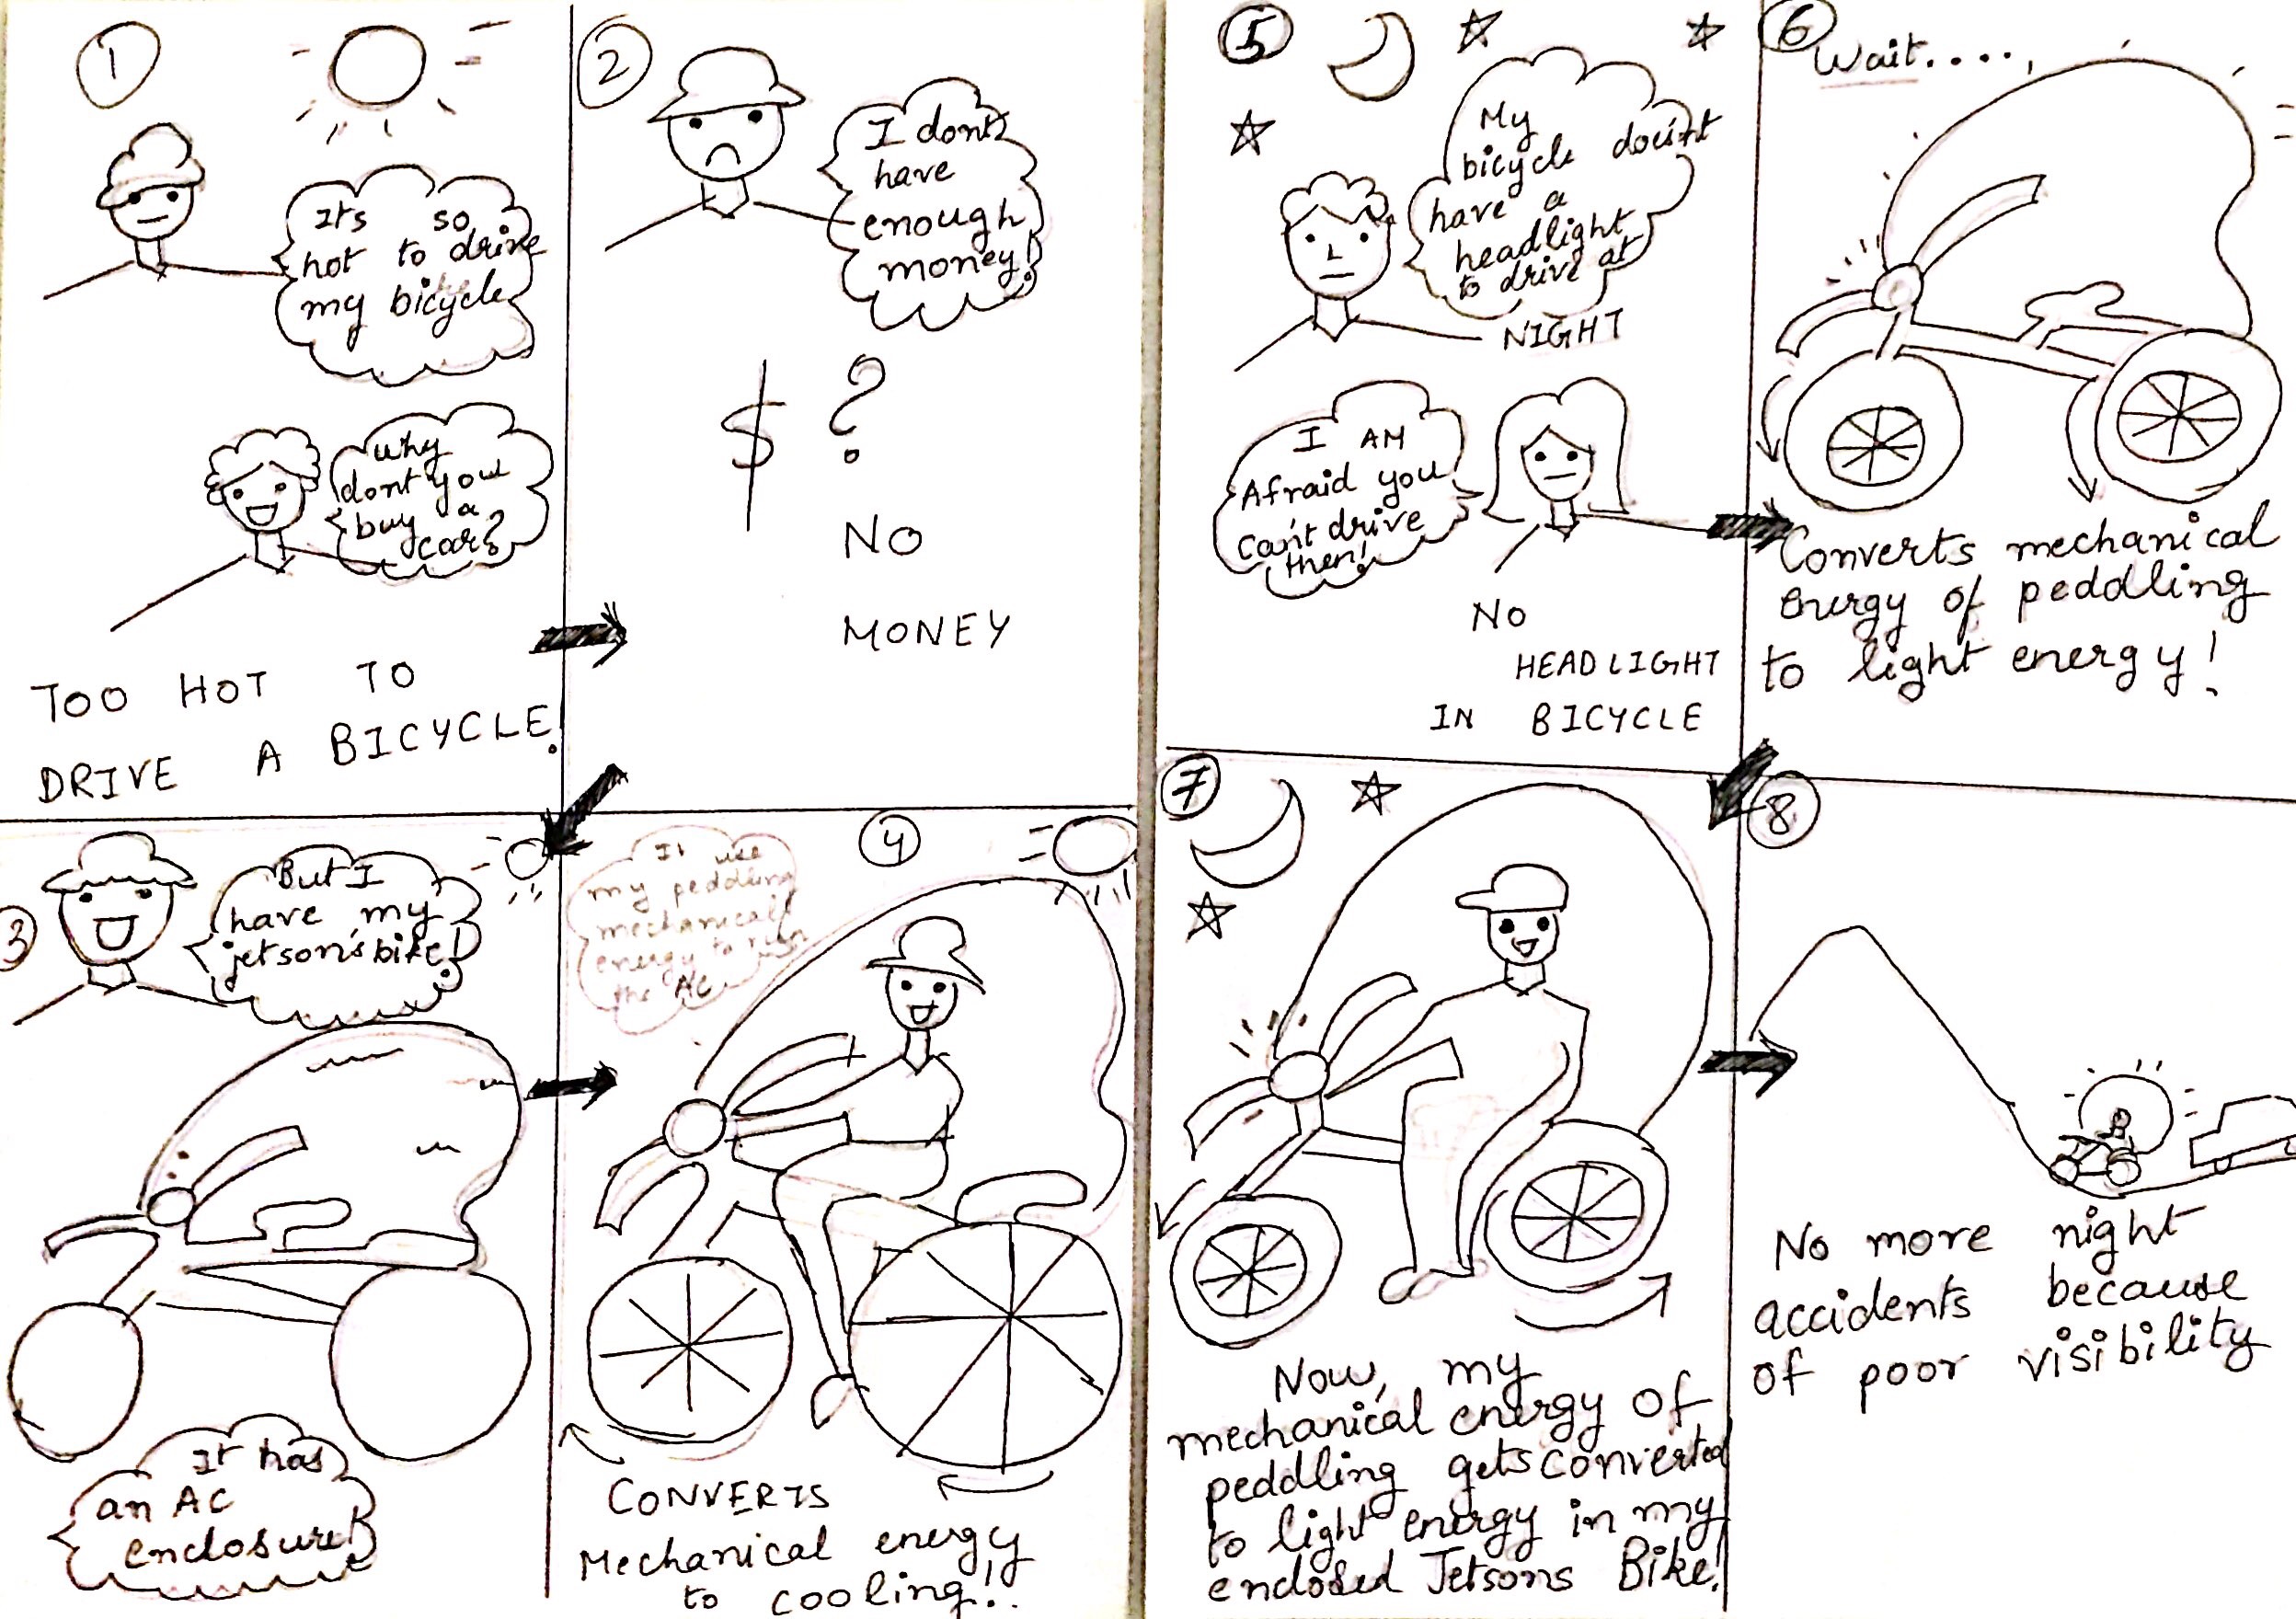 1
Its so
hot to drive
my bicycle
why
dont you
buy a
car?
TOO HOT TO
DRIVE A BICYCLE.
2
I dont
have
enough
money!
$ ?
NO
MONEY
3
But I
have my
jetson's bike!
It has
an AC
enclosure!
4
It use
my peddling
mechanical
energy to run
the AC
CONVERTS
Mechanical energy
to cooling!!
5
My
bicycle
have a
headlight
to drive at
NIGHT
I AM
Afraid you
Can't drive
then!
NO
HEADLIGHT
IN BICYCLE
6
Wait....,
Converts mechanical
energy of peddling
to light energy!
7
Now, my
mechanical energy of
peddling gets converted
to light energy in my
enclosed Jetsons Bike!
8
No more night
accidents because
of poor visibility